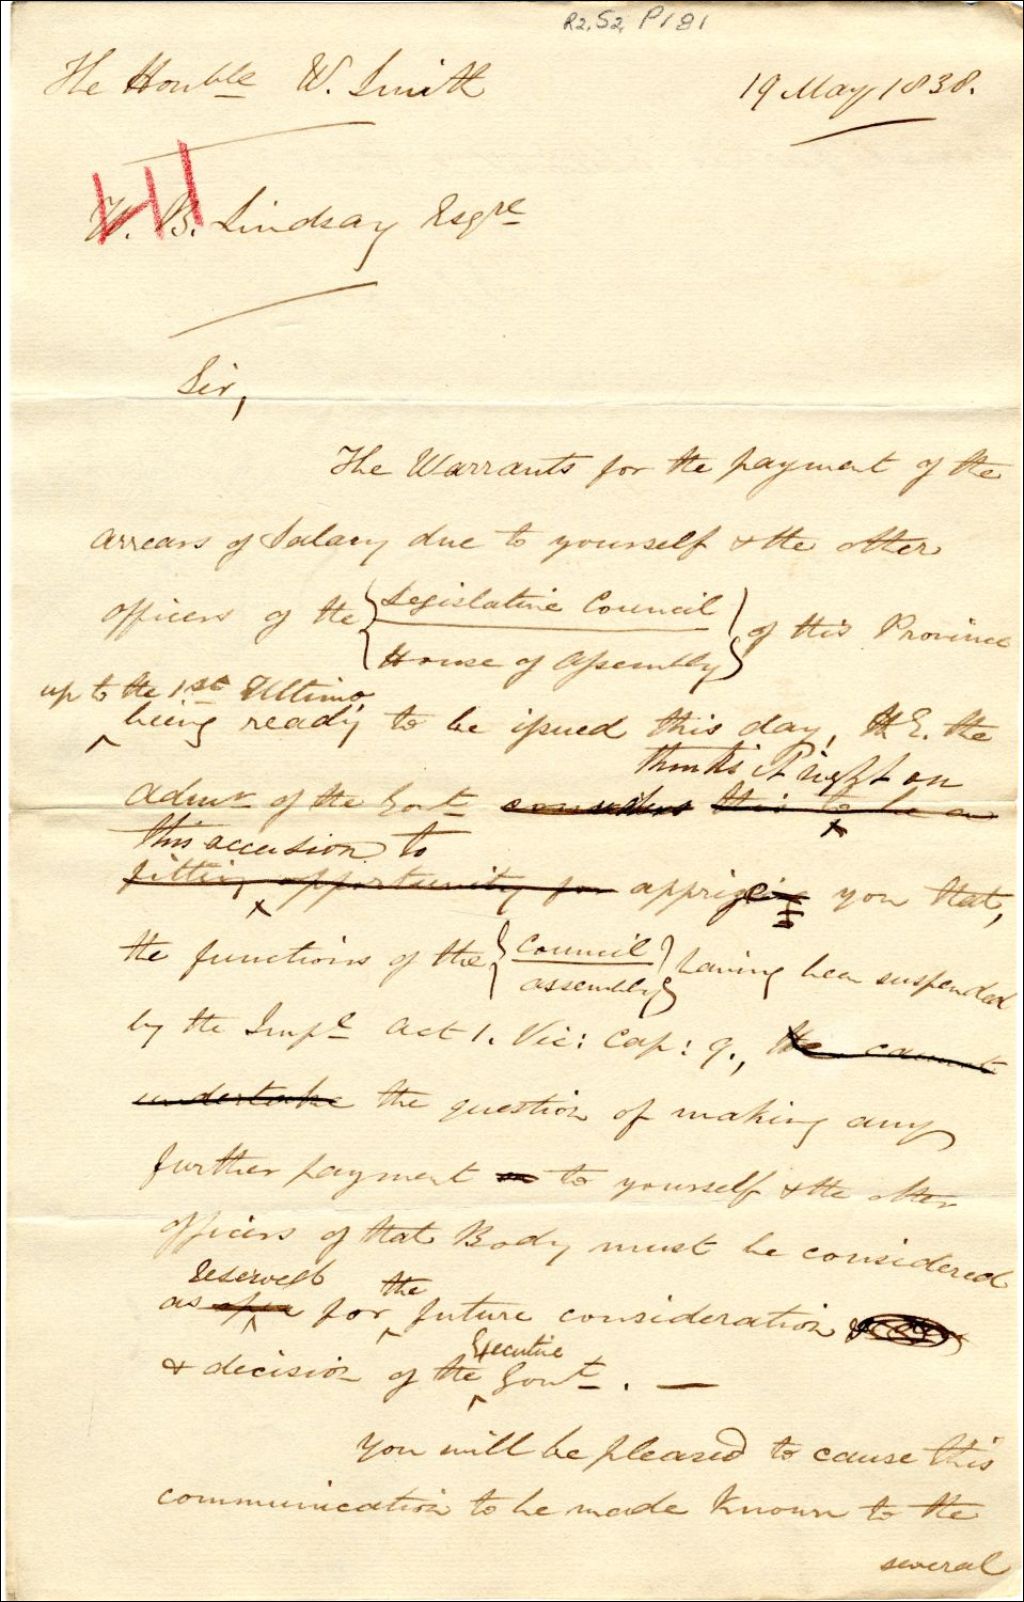 R2, S2, P181
The Honble W. Smith
19 May 1838.
W. B. Lindsay Esqre
Sir,
The Warrants for the payment of the
arrears of Salary due to yourself & the other
officers of the { Legislative Council
House of Assembly } of this Province
up to the 1st Ultimo
being ready to be issued this day, H.E. the
thinks it right on
Admr of the Govt considers this to be a
this occasion to
fitting opportunity for apprizeing you that,
the functions of the { Council
assembly } having been suspended
by the Impl Act 1. Vic: Cap: 9., the cannot
undertake the question of making any
further payment to yourself & the other
officers of that Body must be considered
reserved the
as open for future consideration
Executive
& decision of the Govt. —
You will be pleased to cause this
communication to be made known to the
several